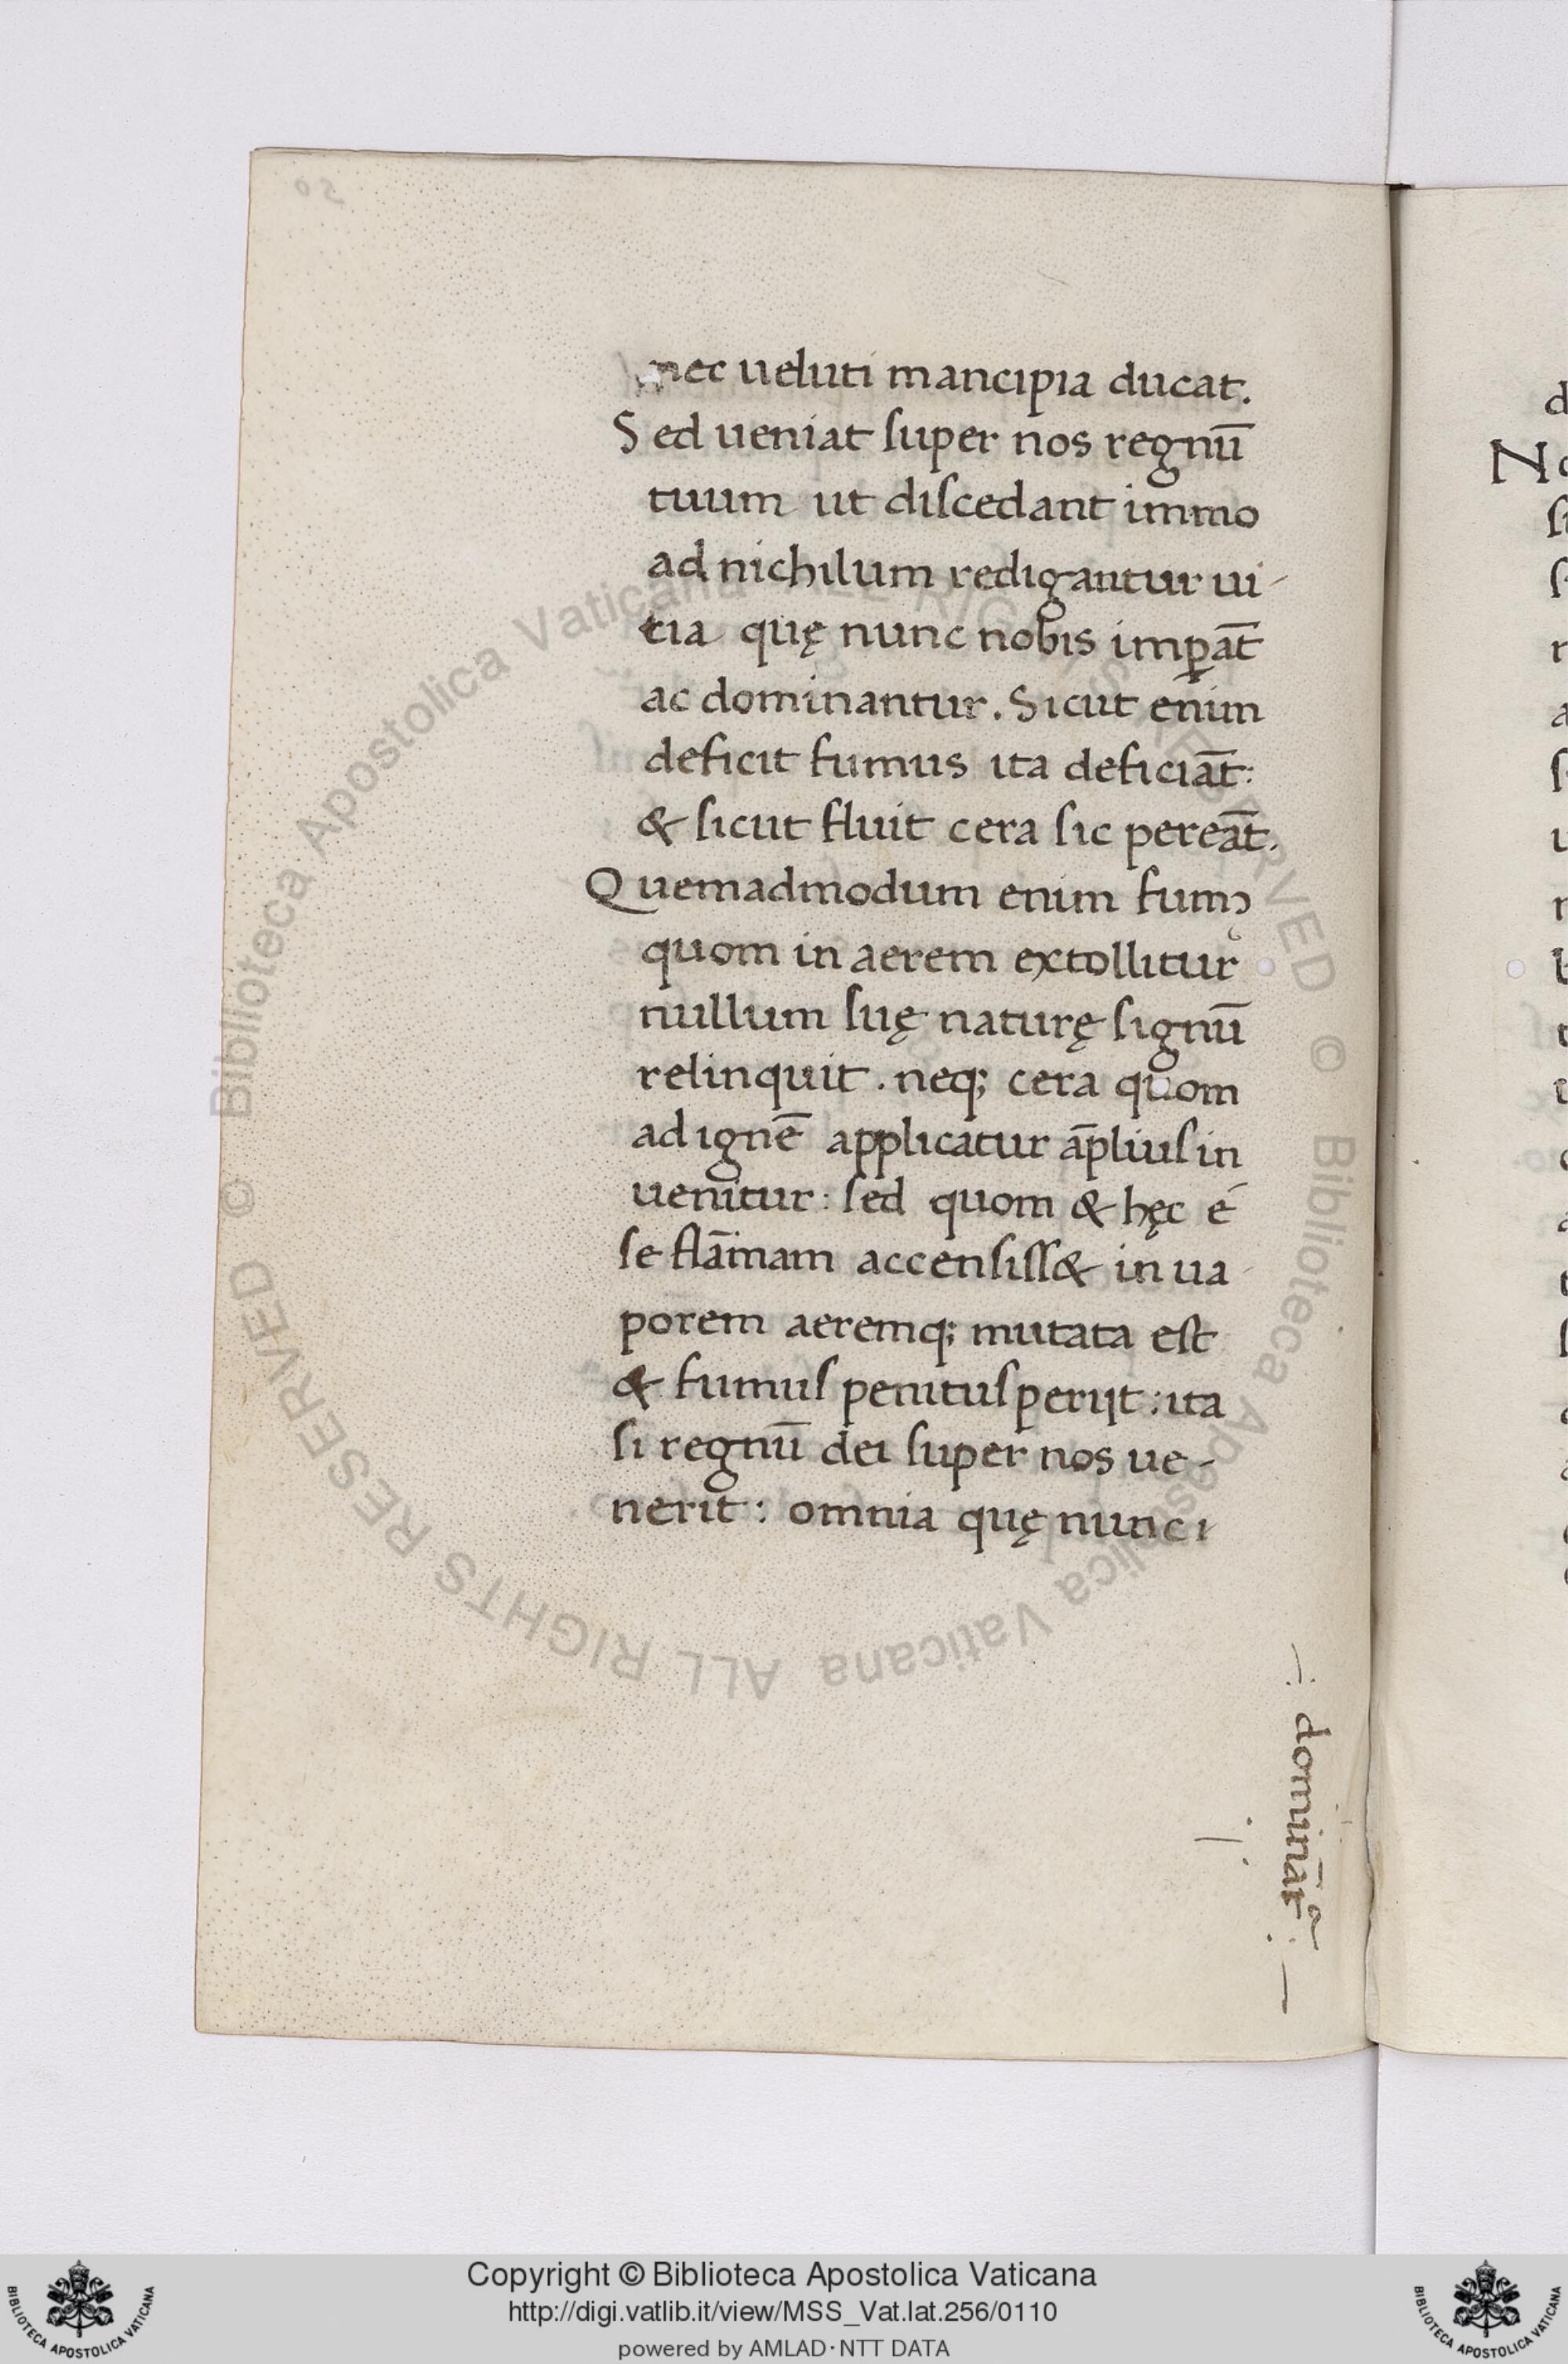 nec ueluti mancipia ducat.
Sed ueniat super nos regnū
tuum ut discedant immo
ad nichilum redigantur ui-
tia quę nunc nobis imꝑāt
ac dominantur. Sicut enim
deficit fumus ita deficiāt:
& sicut fluit cera sic pereāt.
Quemadmodum enim fumꝰ
quom in aerem extollitur
nullum suę naturę signū
relinquit. neq; cera quom
ad ignē applicatur āplius in
uenitur: sed quom & hęc é
se flāmam accensiss& in ua
porem aeremq; mutata est
& fumus penitus ꝑerijt: ita
si regnū dei super nos ue-
nerit: omnia quę nunc ı
domināt᷑
Copyright © Biblioteca Apostolica Vaticana
http://digi.vatlib.it/view/MSS_Vat.lat.256/0110
powered by AMLAD·NTT DATA
BIBLIOTECA APOSTOLICA VATICANA
BIBLIOTECA APOSTOLICA VATICANA
© Biblioteca Apostolica Vaticana ALL RIGHTS RESERVED © Biblioteca Apostolica Vaticana ALL RIGHTS RESERVED